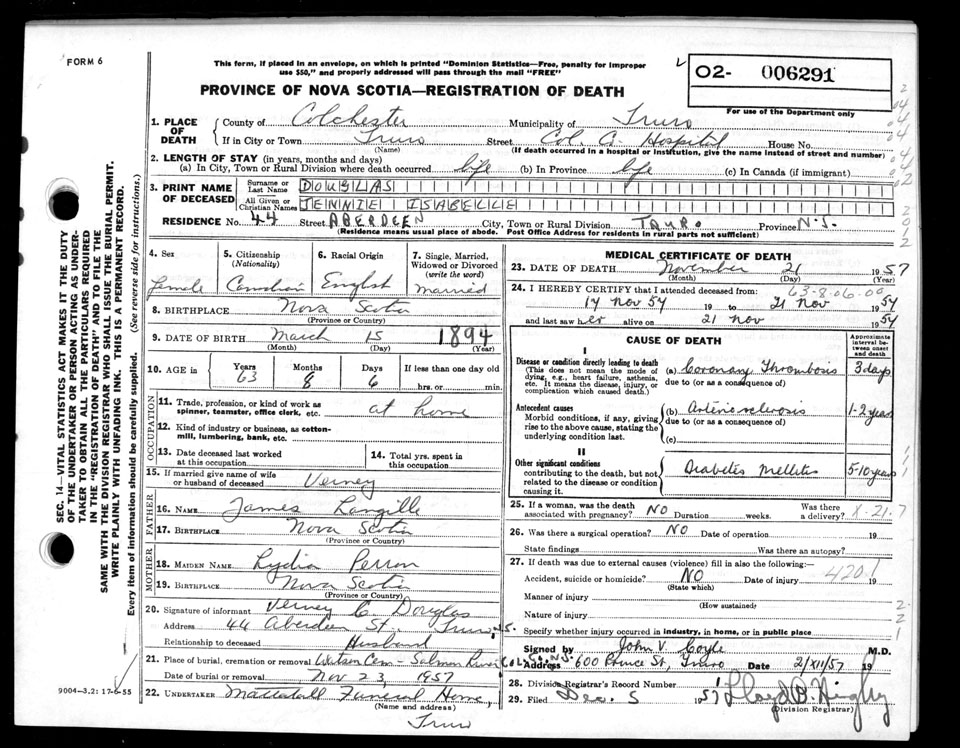 FORM 6
This form, if placed in an envelope, on which is printed "Dominion Statistics—Free, penalty for improper
use $50," and properly addressed will pass through the mail "FREE"
02- 006291
For use of the Department only
PROVINCE OF NOVA SCOTIA—REGISTRATION OF DEATH
1. PLACE OF DEATH
County of Colchester Municipality of Truro
If in City or Town Truro Street Col. C. Hospital House No.
(Name) (If death occurred in a hospital or institution, give the name instead of street and number)
2. LENGTH OF STAY (in years, months and days)
(a) In City, Town or Rural Division where death occurred life (b) In Province life (c) In Canada (if immigrant)
3. PRINT NAME OF DECEASED
Surname or Last Name DOUGLAS
All Given or Christian Names JENNIE ISABELLE
RESIDENCE No. 44 Street ABERDEEN City, Town or Rural Division TRURO Province N.S.
(Residence means usual place of abode. Post Office Address for residents in rural parts not sufficient)
4. Sex
female
5. Citizenship
(Nationality)
Canadian
6. Racial Origin
English
7. Single, Married,
Widowed or Divorced
(write the word)
married
8. BIRTHPLACE Nova Scotia
(Province or Country)
9. DATE OF BIRTH March 15 1894
(Month) (Day) (Year)
10. AGE in Years Months Days If less than one day old
63 8 6 hrs. or min.
OCCUPATION
11. Trade, profession, or kind of work as
spinner, teamster, office clerk, etc. at home
12. Kind of industry or business, as cotton-
mill, lumbering, bank, etc.
13. Date deceased last worked
at this occupation
14. Total yrs. spent in
this occupation
15. If married give name of wife
or husband of deceased Verney
FATHER
16. NAME James Langille
17. BIRTHPLACE Nova Scotia
(Province or Country)
MOTHER
18. MAIDEN NAME Lydia Perron
19. BIRTHPLACE Nova Scotia
(Province or Country)
20. Signature of informant Verney C. Douglas
Address 44 Aberdeen St., Truro N.S.
Relationship to deceased Husband
21. Place of burial, cremation or removal Watson Cem - Salmon River Col. Co. N.S.
Date of burial or removal Nov 23 1957
22. UNDERTAKER Mattatall Funeral Home,
(Name and address)
Truro
MEDICAL CERTIFICATE OF DEATH
23. DATE OF DEATH November 21 1957
(Month) (Day) (Year)
24. I HEREBY CERTIFY that I attended deceased from: 63-8-06-00
14 Nov 57 19 to 21 Nov 1957
and last saw her alive on 21 Nov 1957
CAUSE OF DEATH
Approximate
interval be-
tween onset
and death
I
Disease or condition directly leading to death
(This does not mean the mode of
dying, e.g., heart failure, asthenia,
etc. It means the disease, injury, or
complication which caused death.)
(a) Coronary Thrombosis 3 days
due to (or as a consequence of)
Antecedent causes
Morbid conditions, if any, giving
rise to the above cause, stating the
underlying condition last.
(b) Arteriosclerosis 1-2 years
due to (or as a consequence of)
(c)
II
Other significant conditions
contributing to the death, but not
related to the disease or condition
causing it.
Diabetes Mellitus 5-10 years
25. If a woman, was the death
associated with pregnancy? NO Duration weeks. Was there
a delivery? X-21-7
26. Was there a surgical operation? NO Date of operation 19
State findings Was there an autopsy?
27. If death was due to external causes (violence) fill in also the following:—
Accident, suicide or homicide? NO Date of injury 19
(State which)
4201
Manner of injury
(How sustained)
Nature of injury
Specify whether injury occurred in industry, in home, or in public place
Signed by John V. Coyle M.D.
Address 600 Prince St, Truro Date 2/XII/57 19
28. Division Registrar's Record Number
29. Filed Dec. 5 1957 Lloyd B. Hingley
(Division Registrar)
9004-3.2: 17-6-55
SEC. 14—VITAL STATISTICS ACT MAKES IT THE DUTY
OF THE UNDERTAKER OR PERSON ACTING AS UNDER-
TAKER TO OBTAIN ALL THE PARTICULARS REQUIRED
IN THE "REGISTRATION OF DEATH" AND TO FILE THE
SAME WITH THE DIVISION REGISTRAR WHO SHALL ISSUE THE BURIAL PERMIT.
WRITE PLAINLY WITH UNFADING INK. THIS IS A PERMANENT RECORD.
Every item of information should be carefully supplied. (See reverse side for instructions.)